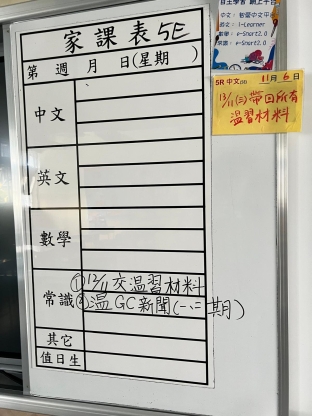 家課表 5E
第 週 月 日(星期 )
中文
英文
數學
常識
① 12/11 交溫習材料
② 溫 GC 新聞(一、二期)
其它
值日生
自主學習 網上平台
中文：
英文：i-Learner
數學：e-Smart2.0
常識：e-Smart2.0
5R 中文 on 11月6日
13/11(三)帶回所有
溫習材料